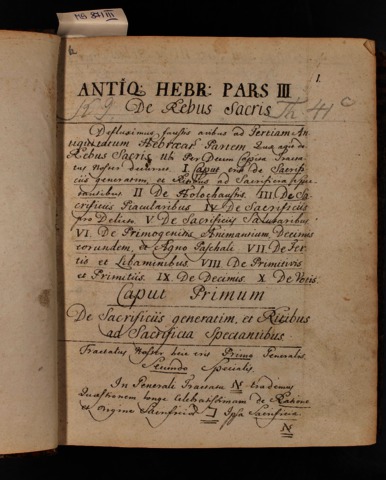 MB 871 III
1.
ANTIQ: HEBR: PARS III
De Rebus Sacris
Th 41 c
Defluximus faustis avibus ad Tertiam An
tiquitatum Hebræar Partem Quæ agit de
Rebus Sacris, ubi Per Decem Capita Tracta
tus Noster decurret. I. Caput erit de Sacrifi
ciis Generatim, et Ritibus ad Sacrificia Spec
tantibus II De Holochaustis. III De Sa
crificiis Piacularibus IV De Sacrificiis
pro Delicto. V De Sacrificiis Salutaribus.
VI. De Primogenitis Animantium, Decimis
eorundem, et Agno Paschali. VII De Fer
tis et Libaminibus. VIII De Primitivis
et Primitiis. IX. De Decimis. X. De Votis.
Caput Primum
De Sacrificiis generatim, et Ritibus
ad Sacrificia Spectantibus.
Tractatus Noster heic erit Primo Generalis.
Secundo Specialis.
In Generali Tractatu א trademus
Quæstionem longe Celebratissimam de Ratione
et origine Sacrificior. ב Ipsa Sacrificia
א